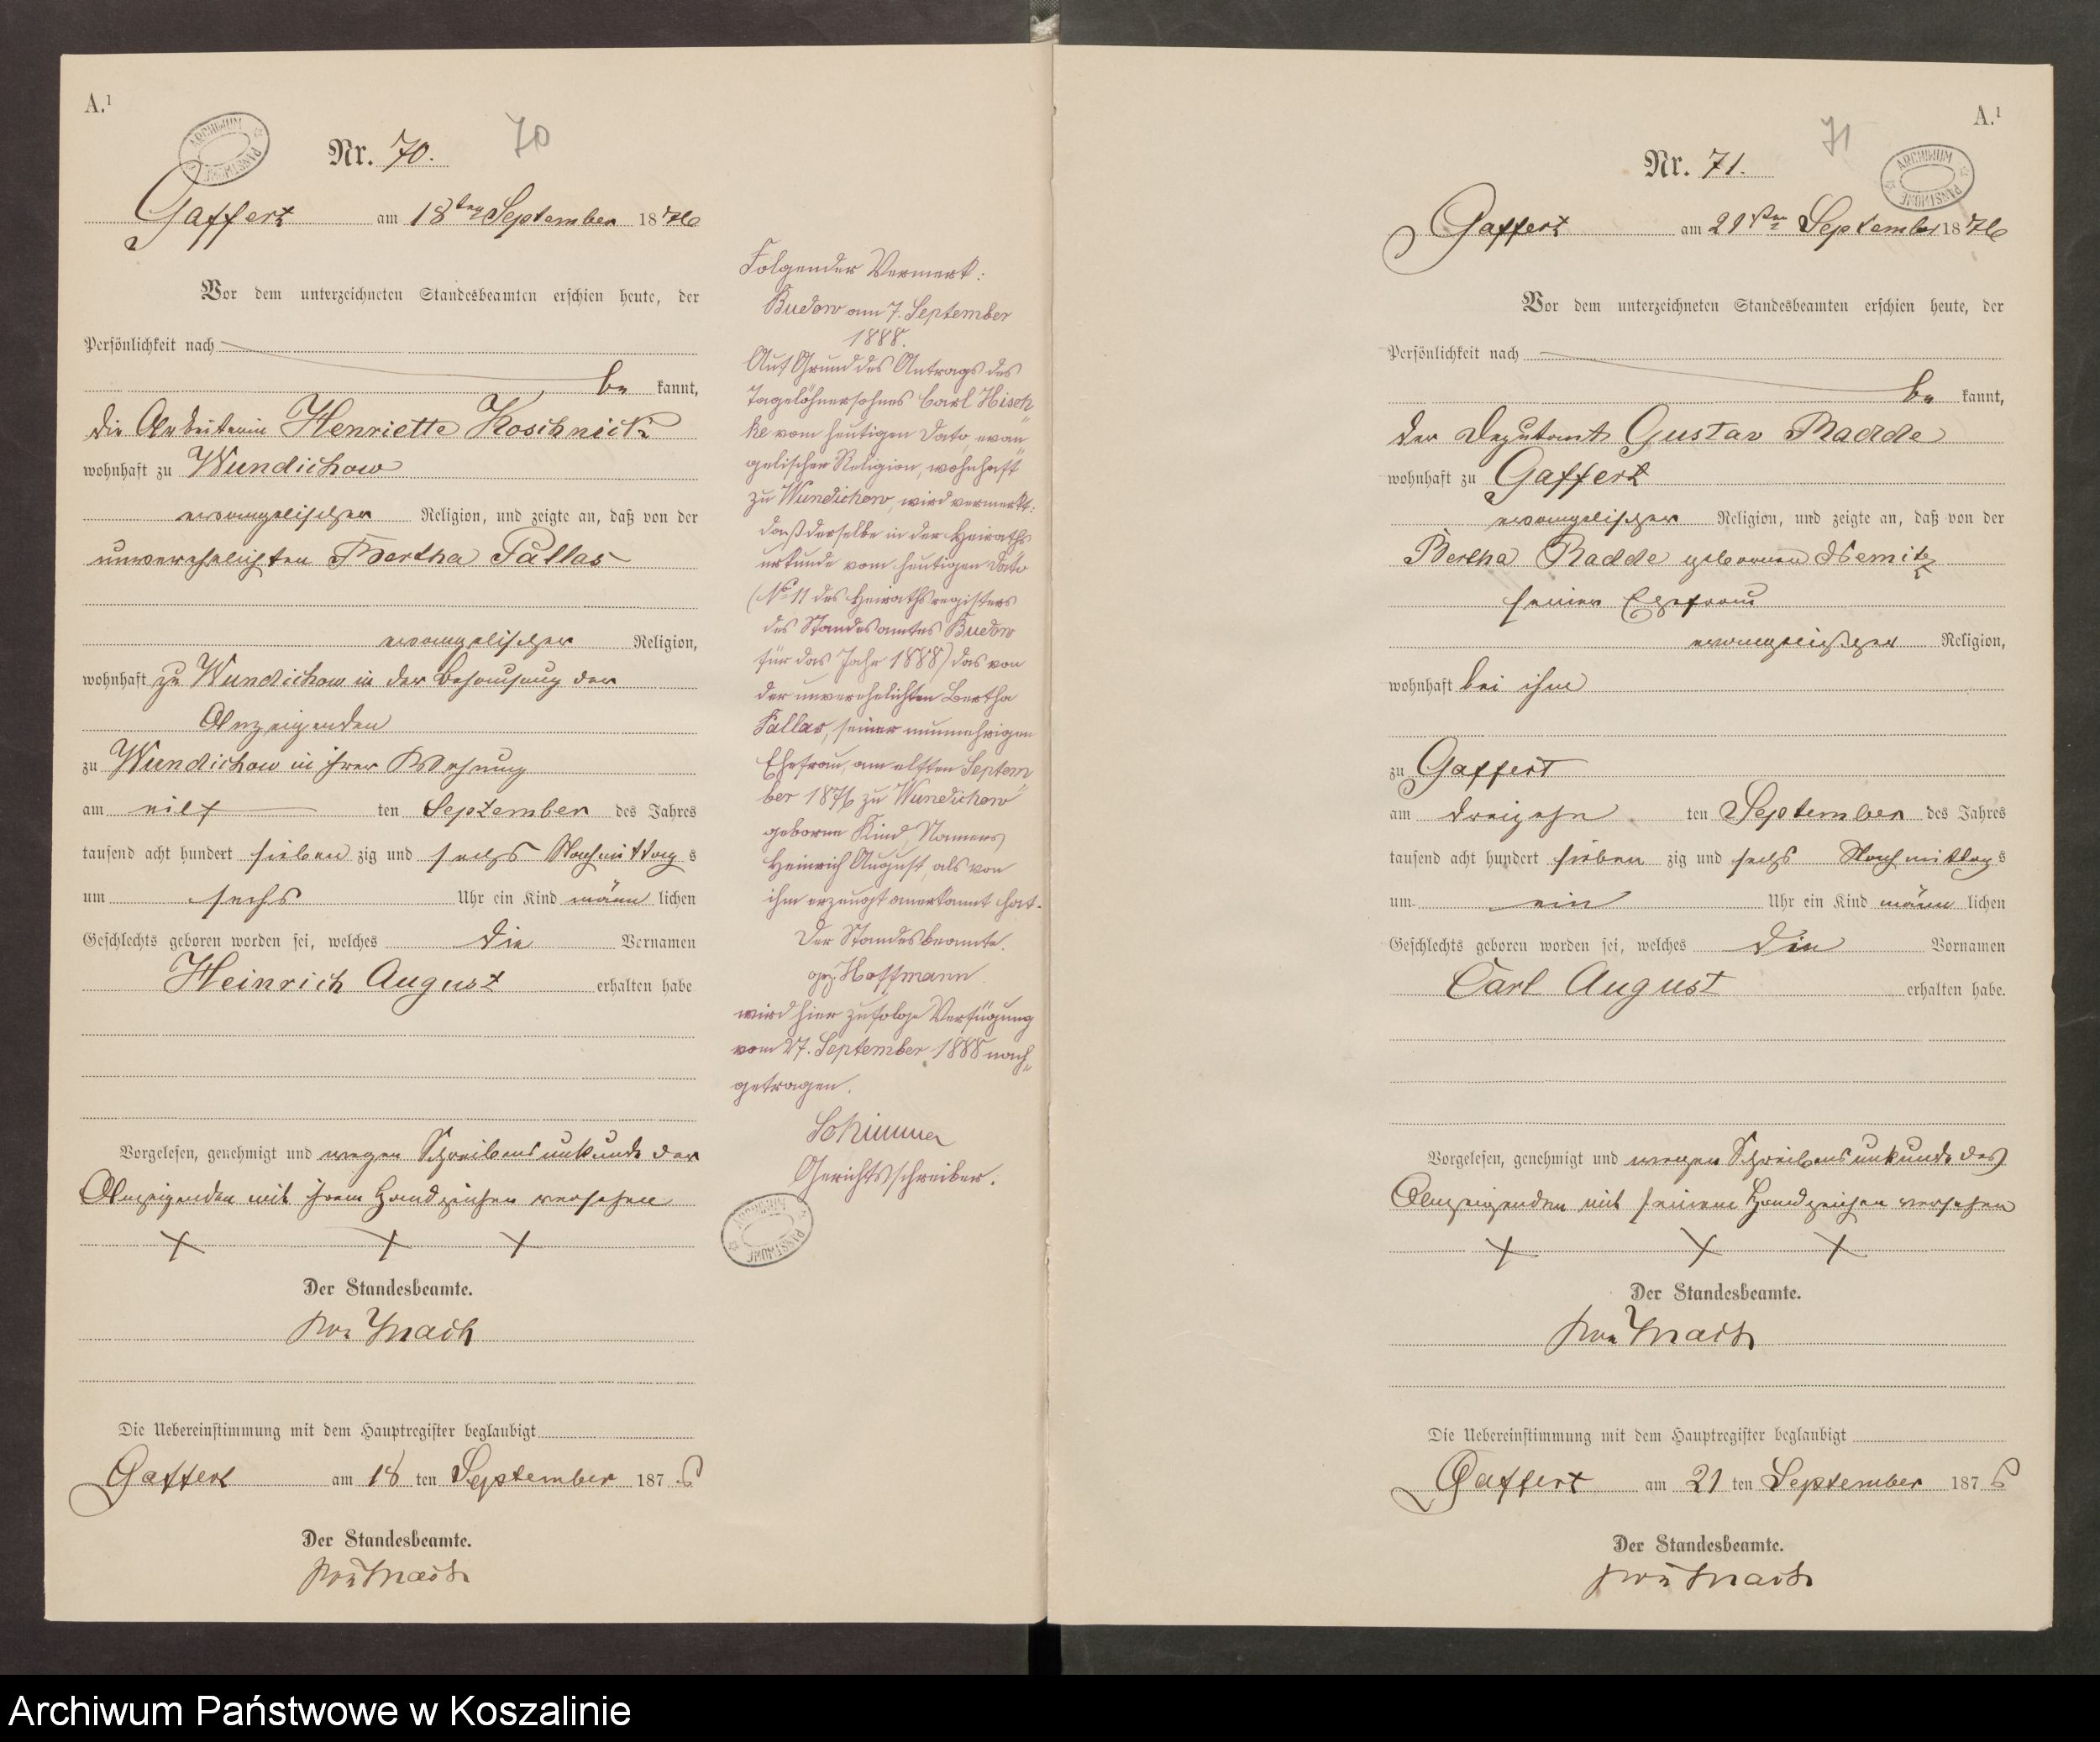 A.¹
ARCHIWUM PAŃSTWOWE
Nr. 70.
70
Gaffert am 18ten September 1876
Vor dem unterzeichneten Standesbeamten erschien heute, der
Persönlichkeit nach
be kannt,
die Arbeiterin Henriette Koschnick
wohnhaft zu Wundichow
evangelischer Religion, und zeigte an, daß von der
unverehelichten Bertha Pallas
evangelischer Religion,
wohnhaft zu Wundichow in der Behausung der
Anzeigenden
zu Wundichow in ihrer Wohnung
am eilf ten September des Jahres
tausend acht hundert sieben zig und sechs Nachmittag s
um sechs Uhr ein Kind männ lichen
Geschlechts geboren worden sei, welches die Vornamen
Heinrich August erhalten habe
Vorgelesen, genehmigt und wegen Schreibensunkunde der
Anzeigenden mit ihrem Handzeichen versehen
+ + +
Der Standesbeamte.
Die Uebereinstimmung mit dem Hauptregister beglaubigt
Gaffert am 18 ten September 1876
Der Standesbeamte.
Folgender Vermerk:
Budow am 7. September
1888.
Auf Grund des Antrags des
Tagelöhnersohnes Carl Hisch„
ke vom heutigen Dato, evan„
gelischer Religion, wohnhaft
zu Wundichow, wird vermerkt:
daß derselbe in der Heiraths„
urkunde vom heutigen Dato
(No 11 des Heirathsregisters
des Standesamtes Budow
für das Jahr 1888) das von
der unverehelichten Bertha
Pallas, seiner nunmehrigen
Ehefrau, am elften Septem„
ber 1876 zu Wundichow
geborene Kind, Namens
Heinrich August, als von
ihm erzeugt anerkannt hat.
Der Standesbeamte.
gez. Hoffmann.
wird hier zufolge Verfügung
vom 27. September 1888 nach„
getragen.
Gerichtsschreiber.
ARCHIWUM PAŃSTWOWE
A.¹
71
ARCHIWUM PAŃSTWOWE
Nr. 71.
Gaffert am 21sten September 1876
Vor dem unterzeichneten Standesbeamten erschien heute, der
Persönlichkeit nach
be kannt,
der Deputant Gustav Radde
wohnhaft zu Gaffert
evangelischer Religion, und zeigte an, daß von der
Bertha Radde geborenen Nemitz
seiner Ehefrau
evangelischer Religion,
wohnhaft bei ihm
zu Gaffert
am dreizehn ten September des Jahres
tausend acht hundert sieben zig und sechs Nachmittag s
um ein Uhr ein Kind männ lichen
Geschlechts geboren worden sei, welches die Vornamen
Carl August erhalten habe.
Vorgelesen, genehmigt und wegen Schreibensunkunde des
Anzeigenden mit seinem Handzeichen versehen
+ + +
Der Standesbeamte.
Die Uebereinstimmung mit dem Hauptregister beglaubigt
Gaffert am 21 ten September 1876
Der Standesbeamte.
Archiwum Państwowe w Koszalinie